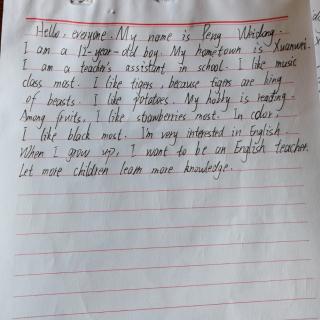 Hello, everyone. My name is Peng
I am a 12-year-old boy. My hometown is Xuanwei.
I am a teacher's assistant in school. I like music
class most. I like tigers, because tigers are king
of beasts. I like potatoes. My hobby is reading.
Among fruits, I like strawberries most. In color,
I like black most. I'm very interested in English.
When I grow up, I want to be an English teacher.
Let more children learn more knowledge.